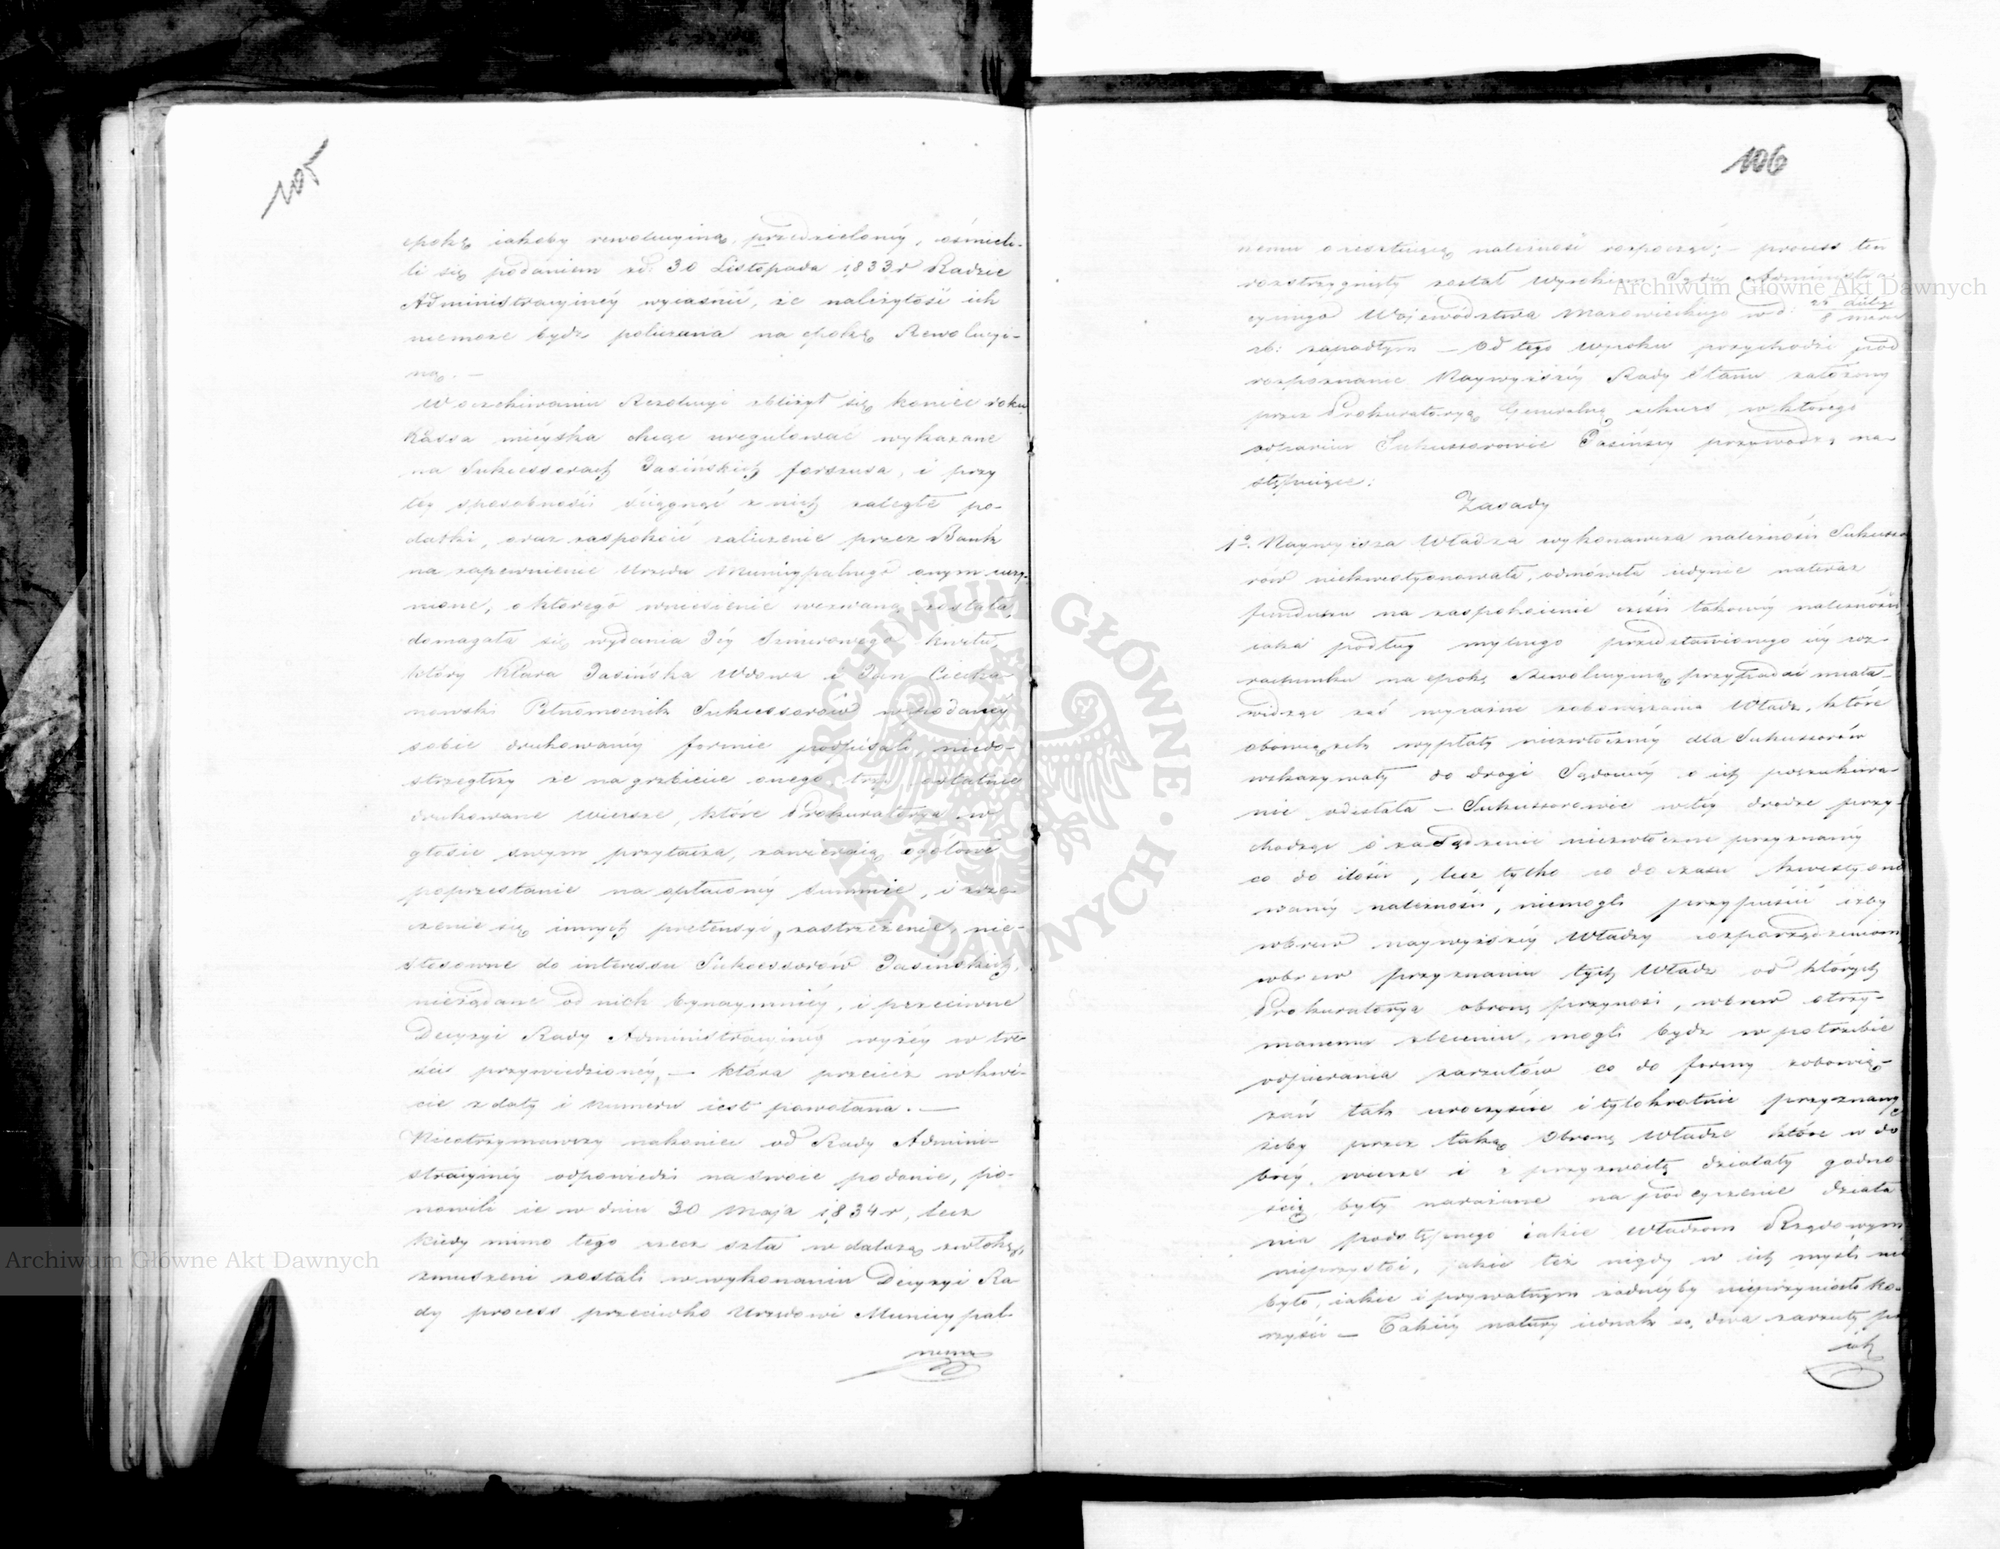 105
epokę iakoby rewolucyiną, przedzieloney, ośmieli-
li się podaniem z d: 30 Listopada 1833 r Radzie
Administracyiney wyiaśnić, że należytość ich
niemoże bydź policzona na epokę Rewolucyi-
ną. —
W oczekiwaniu Rezolucyi zbliżył się koniec roku
Kassa mieyska chcąc uregulować wykazane
na Sukcessorach Jasińskich forszusa, i przy
tey sposobności ściągnąć z nich zaległe po-
datki, oraz zaspokoić zaliczenie przez Bank
na zapewnienie Urzędu Municypalnego onym uczy-
nione, o którego wniesienie wezwaną została
domagała się wydania Jey Sznurowego kwitu,
który Klara Jasińska Wdowa i Jan Ciecha-
nowski Pełnomocnik Sukcessorów w podaney
sobie drukowaney formie podpisali, niedo-
strzegłszy że na grzbiecie onego trzy ostatnie
drukowane wiersze, które Prokuratorya w
głosie swym przytacza, zawieraią ogółowe
poprzestanie na opłaconey summie, i zrze-
czenie się innych pretensyi, zastrzeżenie, nie-
stosowne do interessu Sukcessorów Jasińskich,
nieżądane od nich bynaymniey, i przeciwne
Decyzyi Rady Administracyiney wyżey w tre-
ści przywiedzioney, — która przecież w kwi-
cie z daty i Numeru iest powołana. —
Nieotrzymawszy nakoniec od Rady Admini-
stracyiney odpowiedzi na swoie podanie, po-
nowili ie w dniu 30 Maja 1834 r, lecz
kiedy mimo tego rzecz szła w dalszą zwłokę,
zmuszeni zostali w wykonaniu Decyzyi Ra-
dy process przeciwko Urzędowi Municypal-
nemu
106
nemu o resztuiącą należność rozpocząć; — process ten
rozstrzygnięty został Wyrokiem Sądu Administra-
cyinego Województwa Mazowieckiego w d:
rb: zapadłym — Od tego Wyroku przychodzi pod
rozpoznanie Naywyższey Rady Stanu założony
przez Prokuratoryą Generalną rekurs, w którego
odparciu Sukcessorowie Jasińscy przywodzą na-
stępuiące:
Zasady
1o. Naywyższa Władza wykonawcza należności Sukcesso
rów niekwestyonowała, odmówiła iedynie nateraz
funduszu na zaspokoienie części takowey należności
iaka podług mylnego przedstawionego iey roz-
rachunku na epokę Rewolucyiną przypadać miała-
widząc zaś wyraźne zobowiązania Władz, które
obowiązek wypłaty niezwłoczney dla Sukcessorów
wskazywały do drogi Sądowey o ich poszukiwa-
nie odesłała — Sukcessorowie w tey drodze przy-
chodząc o zasądzenie niezwłoczne przyznaney
co do ilości, lecz tylko co do czasu kwestyono
waney należności, niemogli przypuścić iżby
wbrew naywyższey Władzy rozporządzeniom,
wbrew przyznaniu tych Władz od których
Prokuratorya obronę przynosi, wbrew otrzy-
manemu zleceniu, mogli bydź w potrzebie
odpierania zarzutów co do formy zobowią-
zań tak uroczyście i tylokrotnie przyznanych
żeby przez taką Obronę Władze które w do
brey wierze i z przyzwoitą działały godno-
ścią były narażane na podeyrzenie działa
nia podstępnego iakie Władzom Rządowym
nieprzystoi, jakie też nigdy w ich myśli nie
było, iakie i prywatnym żadneyby nieprzyniosło ko-
rzyści — Takiey natury iednak są dwa zarzuty
ich
Archiwum Główne Akt Dawnych
Archiwum Główne Akt Dawnych
ARCHIWUM GŁÓWNE AKT DAWNYCH